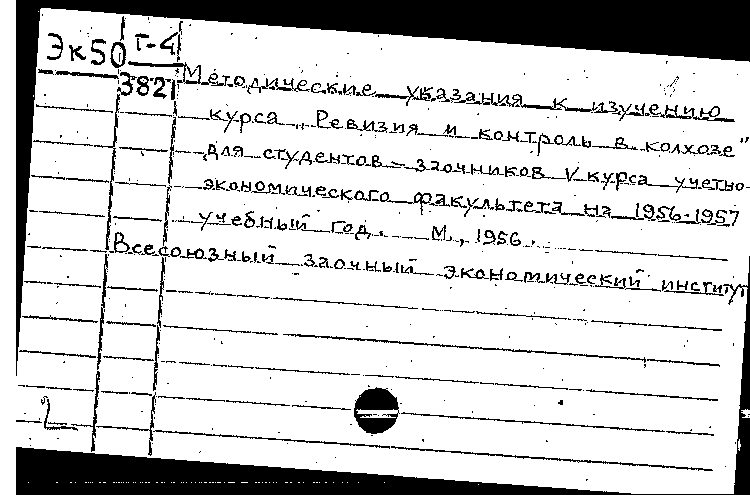 Эк50 Г-4
3821 Методические указания к изучению
курса „Ревизия и контроль в колхозе"
для студентов-заочников V курса учетно-
экономического факультета на 1956-1957
учебный год. М., 1956.
Всесоюзный заочный экономический институт
2